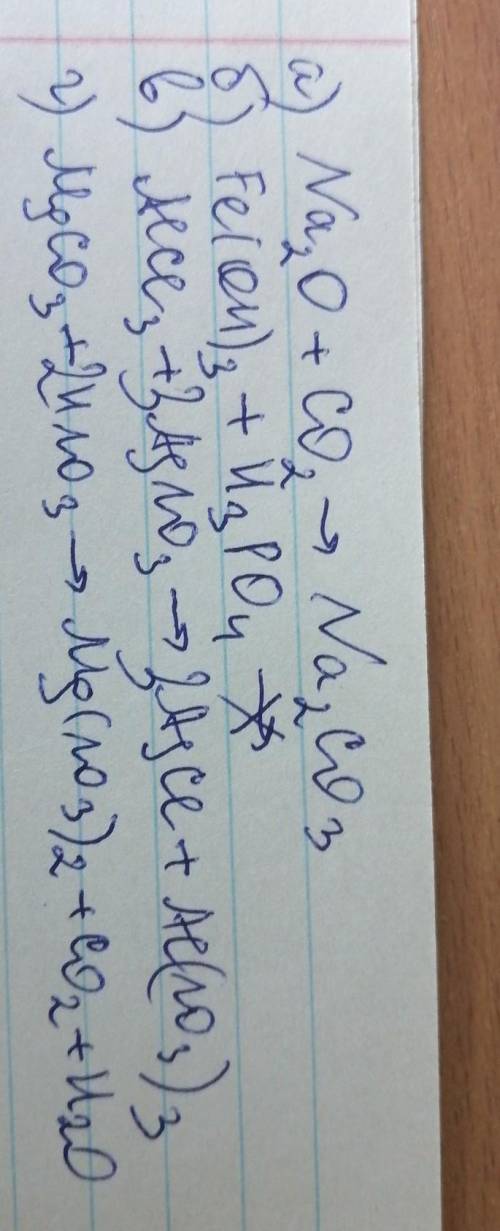 а) Na₂O + CO₂ → Na₂CO₃
б) Fe(OH)₃ + H₃PO₄ ↛
в) AlCl₃ + 3AgNO₃ → 3AgCl + Al(NO₃)₃
г) MgCO₃ + 2HNO₃ → Mg(NO₃)₂ + CO₂ + H₂O